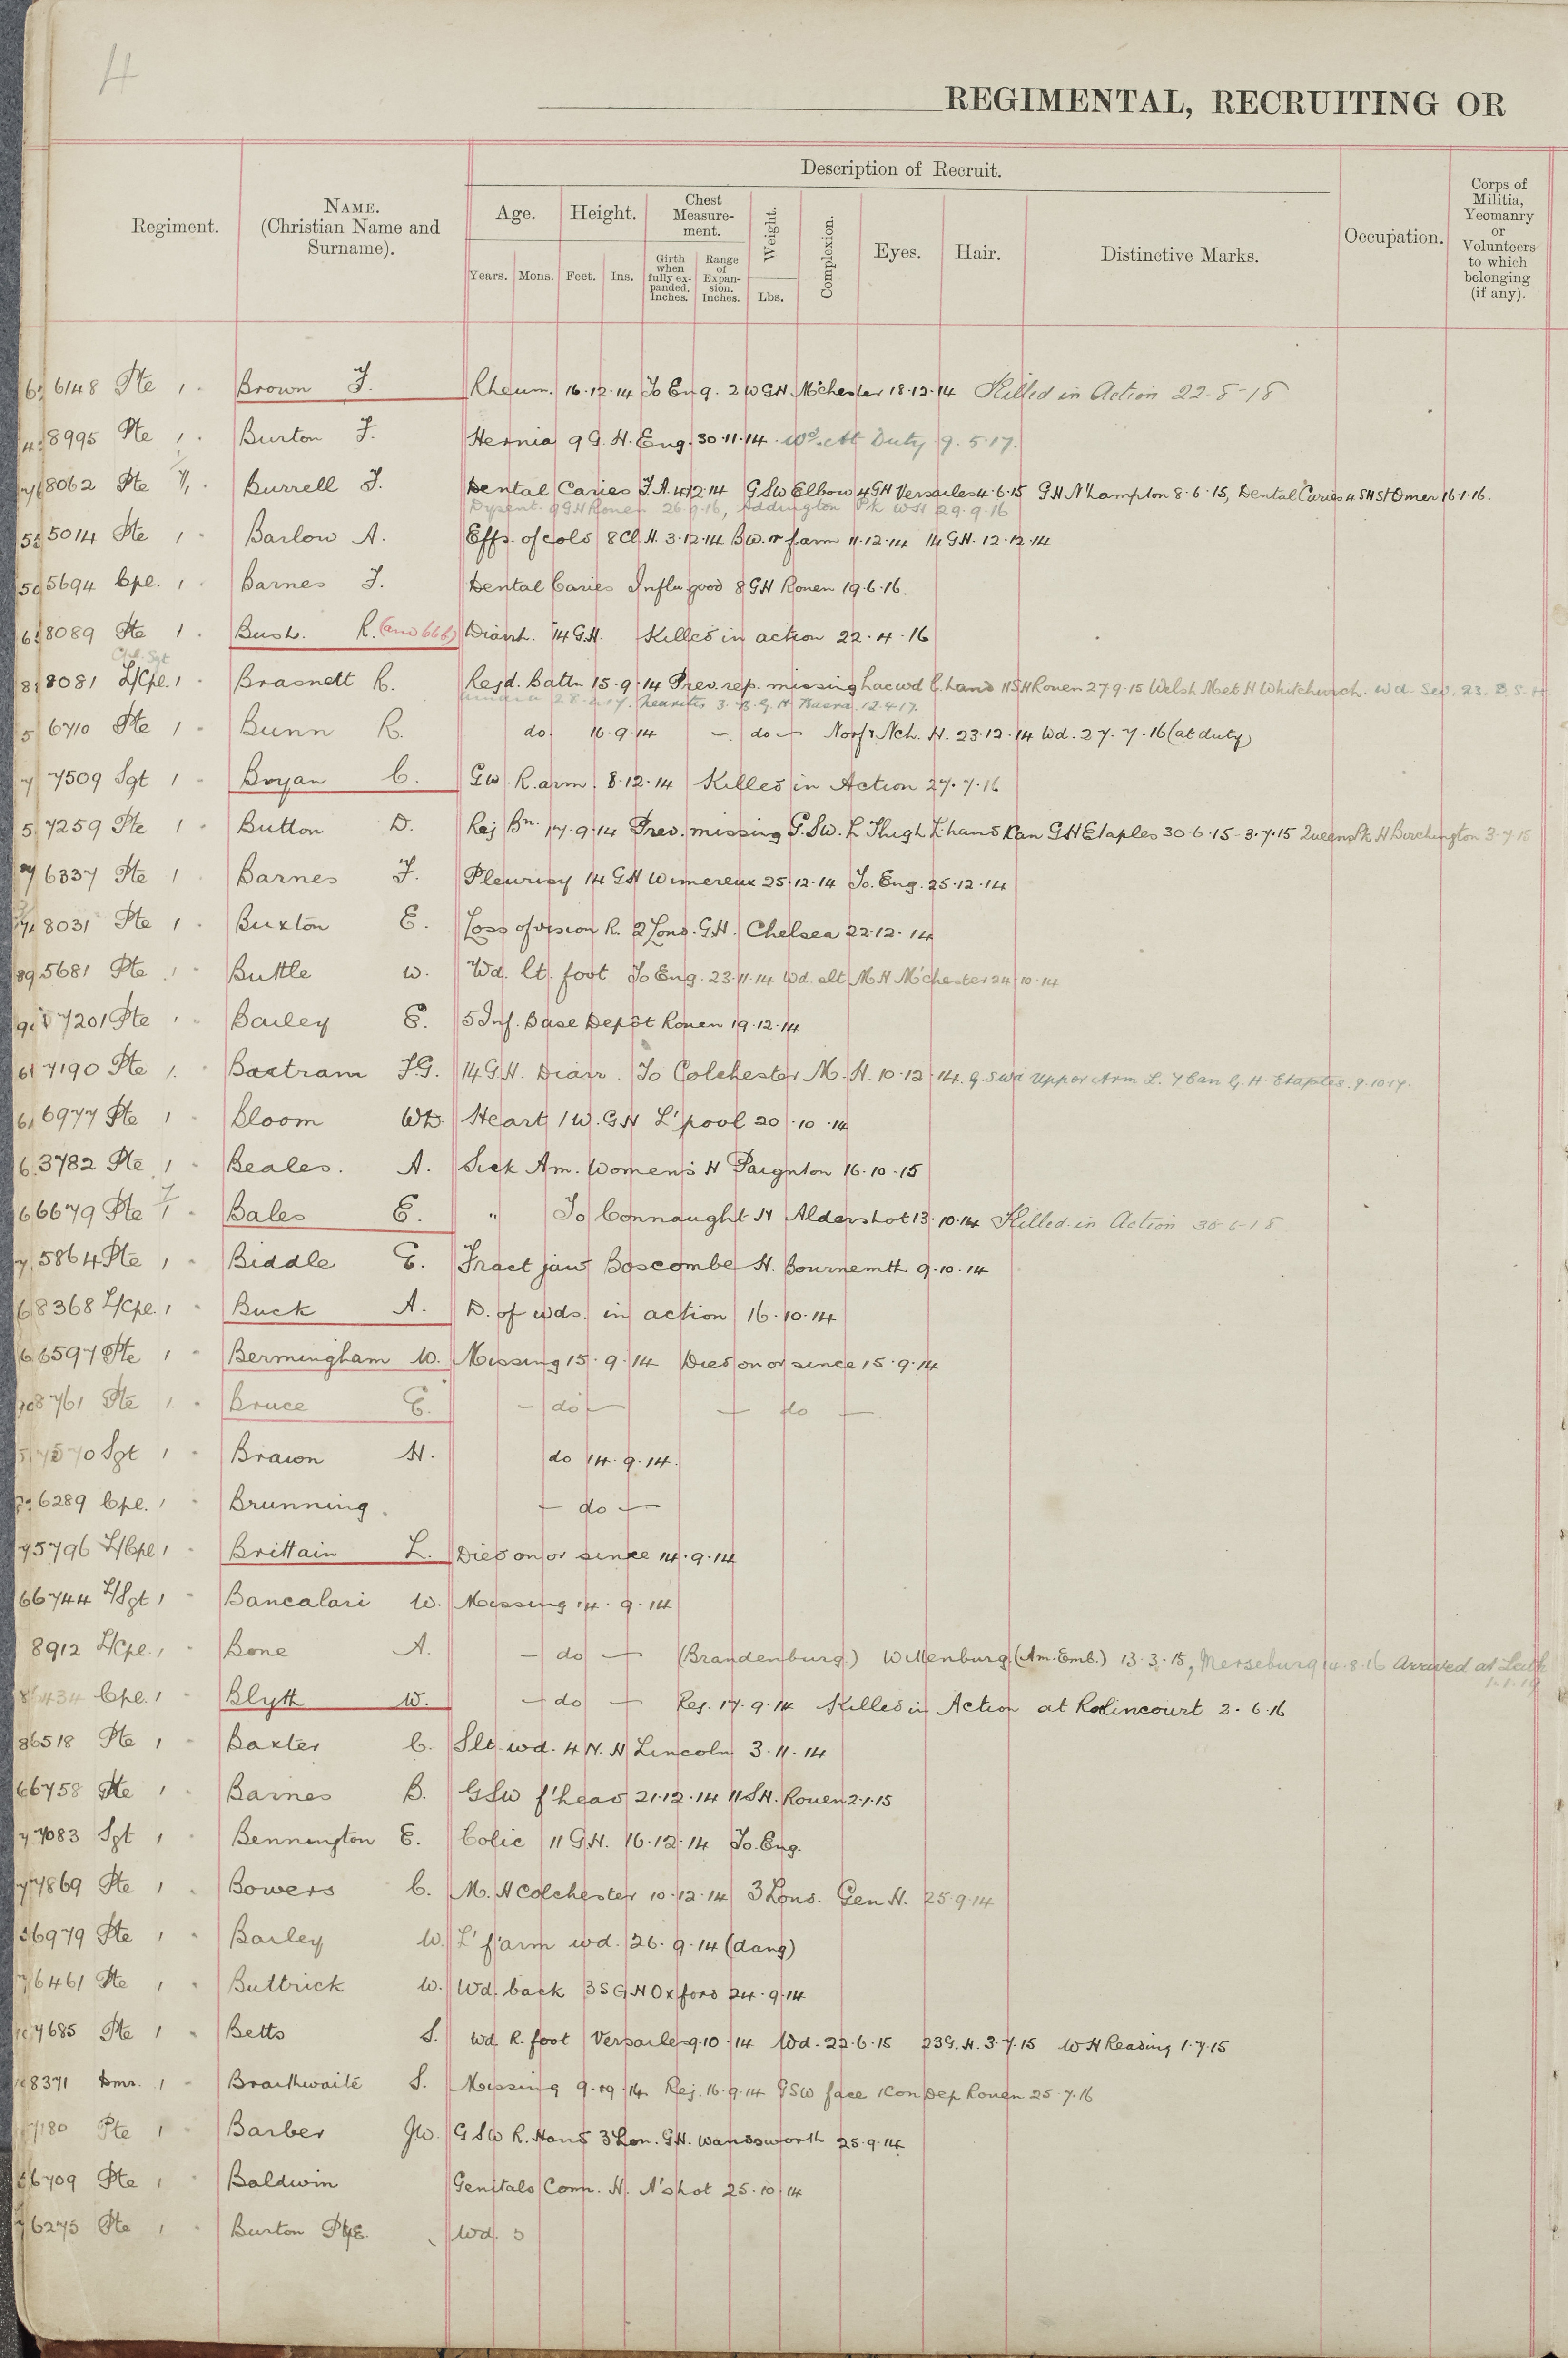 4
REGIMENTAL, RECRUITING OR
Regiment.
NAME.
(Christian Name and
Surname).
Description of Recruit.
Age.
Years.
Mons.
Height.
Feet.
Ins.
Chest
Measure-
ment.
Girth
when
fully ex-
panded.
Inches.
Range
of
Expan-
sion.
Inches.
Weight.
Lbs.
Complexion.
Eyes.
Hair.
Distinctive Marks.
Occupation.
Corps of
Militia,
Yeomanry
or
Volunteers
to which
belonging
(if any).
6148 Pte 1 Brown F. Rheum. 16.12.14 To Eng. 2 W GH M'chester 18.12.14 Killed in Action 22-8-18
8995 Pte 1 Burton F. Hernia 9 G.H. Eng. 30.11.14. Wd. At Duty 9.5.17.
8062 Pte Burrell F. Dental Caries F.A. 4.12.14 GSW Elbow 4 GH Versailes 4.6.15 GH N'hampton 8.6.15, Dental Caries 4 SH St Omer 16.1.16.
Dysent. 9 GH Rouen 26.9.16, Addington Pk WH 29.9.16
5014 Pte 1 Barlow A. Effs. of cold 8 Cl H. 3.12.14 B.W. r farm 11.12.14 14 GH. 12.12.14
5694 Cpl. 1 Barnes F. Dental Caries Influ good 8 GH Rouen 19.6.16.
8089 Pte 1 Bush. R. (and 666) Diarrh. 14 G.H. Killed in action 22.4.16
8081 L/Cpl. 1 Brasnett R. Rejd. Battn 15.9.14 Prev. rep. missing Lac wd l. hand 11 SH Rouen 27.9.15 Welsh Met H Whitchurch. Wd. Sev. 23.
28.4.17. Neuritis 3. B.G.H Basra. 12.4.17.
6710 Pte 1 Bunn R. do 16.9.14 - do - Norf r Nch. H. 23.12.14 Wd. 27.7.16 (at duty)
7509 Sgt 1 Bryan C. GW. R. arm. 8.12.14 Killed in Action 27.7.16
7259 Pte 1 Button D. Rej Bn. 17.9.14 Prev. missing G.S.W. L Thigh L. hand Can GH Etaples 30.6.15 - 3.7.15 Queens Pk H Birchington 3.7.15
6337 Pte 1 Barnes F. Pleurisy 14 GH Wimereux 25.12.14 To. Eng. 25.12.14
8031 Pte 1 Buxton E. Loss of vision R. 2 Lond. G.H. Chelsea 22.12.14
5681 Pte 1 Buttle W. Wd. lt. foot To Eng. 23.11.14 Wd. slt M H M'chester 24.10.14
7201 Pte Bailey E. 5 Inf. Base Depôt Rouen 19.12.14
7190 Pte 1 Bartram F.G. 14 G.H. Diarr. To Colchester M.H. 10.12.14. G.S.Wd Upper Arm L. 7 Can G.H. Etaples. 9.10.17.
6977 Pte 1 Bloom WD. Heart 1 W.GH L'pool 20.10.14
3782 Pte 1 Beales. A. Sick Am. Women's H Paignton 16.10.15
6679 Pte 1 Bales E. " To Connaught H Aldershot 13.10.14 Killed in Action 30-6-18
5864 Pte 1 Biddle E. Fract jaw Boscombe H. Bournemth 9.10.14
8368 L/Cpl. 1 Buck A. D. of wds. in action 16.10.14
6597 Pte 1 Bermingham W. Missing 15.9.14 Died on or since 15.9.14
8761 Pte 1 Bruce E. - do - - do -
7570 Sgt 1 Brawn H. do 14.9.14.
6289 Cpl. 1 Brunning. - do -
5796 L/Cpl 1 Brittain L. Died on or since 14.9.14
6744 L/Sgt 1 Bancalari W. Missing 14.9.14
8912 L/Cpl. 1 Bone A. - do - (Brandenburg.) Wittenburg (Am. Emb.) 13.3.15, Merseburg 14.8.16 Arrived at Leith
1.1.19
8434 Cpl. 1 Blyth W. - do - Rej. 17.9.14 Killed in Action at Roclincourt 2.6.16
6518 Pte 1 Baxter C. Slt. wd. 4 N.H Lincoln 3.11.14
6758 Pte 1 Barnes B. GSW f'head 21.12.14 11 SH. Rouen 2.1.15
7083 Sgt 1 Bennington E. Colic 11 G.H. 16.12.14 To. Eng.
7869 Pte 1 Bowers C. M.H Colchester 10.12.14 3 Lond. Gen H. 25.9.14
6979 Pte 1 Barley W. L' f'arm wd. 26.9.14 (dang)
6461 Pte 1 Buttrick W. Wd. back 3 S G H Oxford 24.9.14
7685 Pte 1 Betts S. Wd R. foot Versailes 9.10.14 Wd. 22.6.15 23 G.H. 3.7.15 W H Reading 1.7.15
8371 Dmr. 1 Braithwaite S. Missing 9.9.14. Rej. 16.9.14 GSW face 1 Con Dep Rouen 25.7.16
7180 Pte 1 Barber JW. GSW R. Hand 3 Lon. GH. Wandsworth 25.9.14
6709 Pte 1 Baldwin Genitals Conn. H. A'shot 25.10.14
6275 Pte 1 Burton Wd.